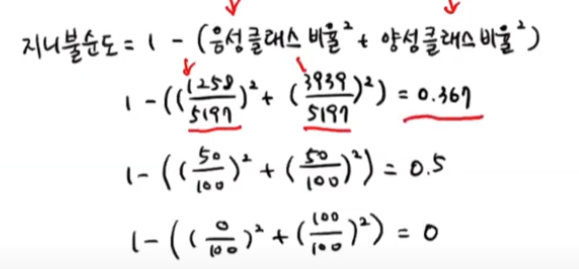 지니불순도 = 1 - (음성클래스 비율² + 양성클래스비율²)
1 - ((1258/5197)² + (3939/5197)²) = 0.367
1 - ((50/100)² + (50/100)²) = 0.5
1 - ((0/100)² + (100/100)²) = 0